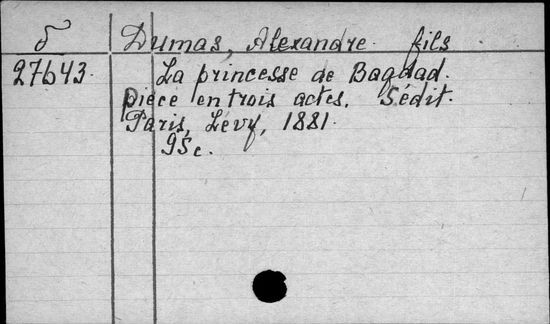 δ Dumas, Alexandre fils
27643. La princesse de Bagdad.
pièce en trois actes. 5édit.
Paris, Lévy, 1881.
95c.